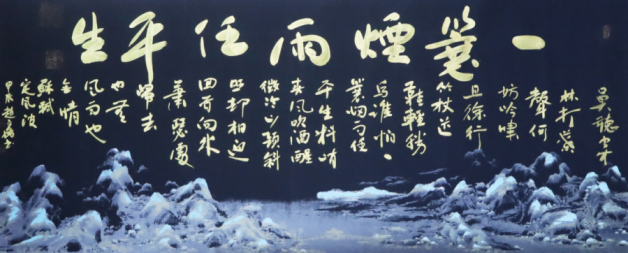 一蓑煙雨任平生
莫聽穿
林打葉
聲何
妨吟嘯
且徐行
竹杖芒
鞋輕勝
馬誰怕一
蓑烟雨任
平生料峭
春風吹酒醒
微冷山頭斜
照却相迎
回首向来
蕭瑟處
歸去
也無
風雨也
無晴
蘇軾
定風波
甲辰